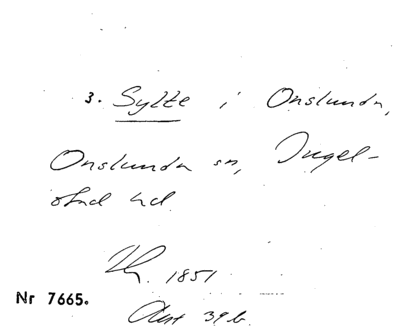 3. Sylte i Onslunda,
Onslunda sn, Ingel-
stad hd
1851
Nr 7665.
39 b.